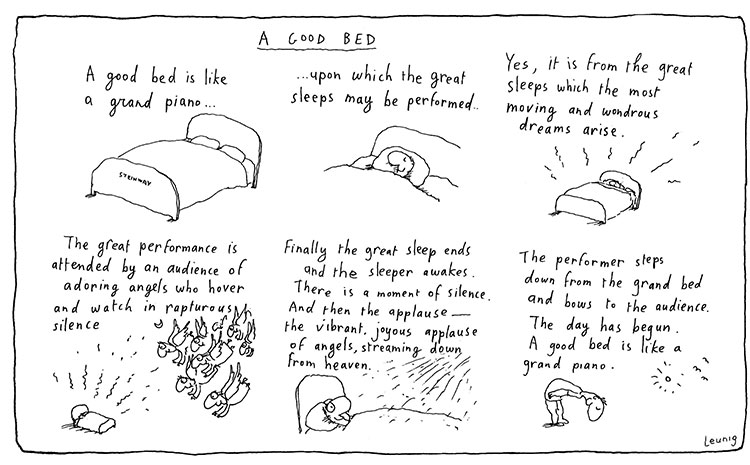 A GOOD BED
A good bed is like
a grand piano...
STEINWAY
...upon which the great
sleeps may be performed..
Yes, it is from the great
sleeps which the most
moving and wondrous
dreams arise.
The great performance is
attended by an audience of
adoring angels who hover
and watch in rapturous
silence
Finally the great sleep ends
and the sleeper awakes.
There is a moment of silence.
And then the applause —
the vibrant, joyous applause
of angels, streaming down
from heaven.
The performer steps
down from the grand bed
and bows to the audience.
The day has begun.
A good bed is like a
grand piano.
Leunig